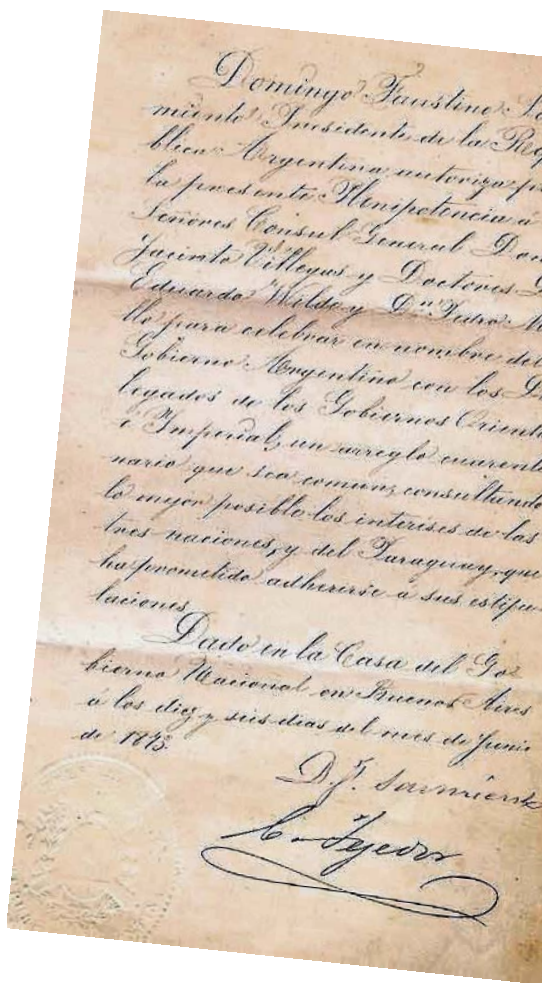 Domingo Faustino Sa
miento Presidente de la Repú
blica Argentina autoriza p
la presente Plenipotencia á
Señores Consul General Don
Jacinto Villegas y Doctores D
Eduardo Wilde y Dn Pedro Ma
llo para celebrar en nombre del
Gobierno Argentino con los De
legados de los Gobiernos Orienta
é Imperial, un arreglo cuarente
nario que sea comun, consultando
lo mejor posible los intereses de las
tres naciones, y del Paraguay, que
ha prometido adherirse á sus estipu-
laciones.
Dado en la Casa del Go
bierno Nacional en Buenos Aires
á los diez y seis dias del mes de Junio
de 1873.
D. F. Sarmiento
C. Tejedor